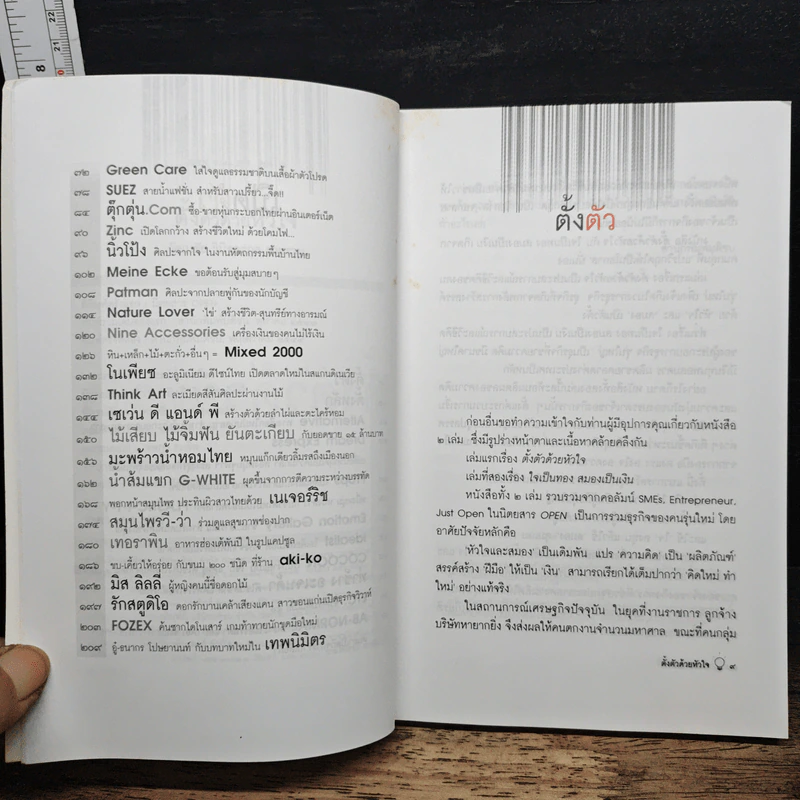 ๗๒ Green Care ใส่ใจดูแลธรรมชาติบนเสื้อผ้าตัวโปรด
๗๘ SUEZ สายน้ำแฟชั่น สำหรับสาวเปรี้ยว...จี๊ด!!
๘๔ ตุ๊กตุ่น.Com ซื้อ-ขายหุ่นกระบอกไทยผ่านอินเตอร์เน็ต
๙๐ Zinc เปิดโลกกว้าง สร้างชีวิตใหม่ ด้วยโคมไฟ...
๙๖ นิ้วโป้ง ศิลปะจากใจ ในงานหัตถกรรมพื้นบ้านไทย
๑๐๒ Meine Ecke ขอต้อนรับสู่มุมสบายๆ
๑๐๘ Patman ศิลปะจากปลายพู่กันของนักบัญชี
๑๑๔ Nature Lover 'ไข่' สร้างชีวิต-สุนทรีย์ทางอารมณ์
๑๒๐ Nine Accessories เครื่องเงินของคนไม่ไร้เงิน
๑๒๖ หิน+เหล็ก+ไม้+ตะกั่ว+อื่นๆ = Mixed 2000
๑๓๒ โนเพียซ อะลูมิเนียม ดีไซน์ไทย เปิดตลาดใหม่ในสแกนดิเนเวีย
๑๓๘ Think Art ละเมียดสีสันศิลปะผ่านงานไม้
๑๔๔ เซเว่น ดี แอนด์ พี สร้างตัวด้วยลำไผ่และตะไคร้หอม
๑๕๐ ไม้เสียบ ไม้จิ้มฟัน ยันตะเกียบ กับยอดขาย ๑๕ ล้านบาท
๑๕๖ มะพร้าวน้ำหอมไทย หมุนแก๊กเดียวลิ้มรสถึงเมืองนอก
๑๖๒ น้ำส้มแขก G-WHITE ผุดขึ้นจากการตีความระหว่างบรรทัด
๑๖๘ พอกหน้าสมุนไพร ประทินผิวสาวไทยด้วย เนเจอร์ริช
๑๗๔ สมุนไพรวี-ว่า ร่วมดูแลสุขภาพช่องปาก
๑๘๐ เทอราพิน อาหารฮ่องเต้พันปี ในรูปแคปซูล
ขบ-เคี้ยวให้อร่อย กับขนม ๒๐๐ ชนิด ที่ร้าน aki-ko
๑๙๒ มิส ลิลลี่ ผู้หญิงคนนี้ชื่อดอกไม้
๑๙๗ รักสตูดิโอ ตอกรักบานเคล้าเสียงแคน สาวขอนแก่นเปิดธุรกิจวิวาห์
๒๐๓ FOZEX ค้นซากไดโนเสาร์ เกมท้าทายนักขุดมือใหม่
๒๐๙ อู๋-ธนากร โปษยานนท์ กับบทบาทใหม่ใน เทพนิมิตร
ตั้งตัว
ก่อนอื่นขอทำความเข้าใจกับท่านผู้มีอุปการคุณเกี่ยวกับหนังสือ
๒ เล่ม ซึ่งมีรูปร่างหน้าตาและเนื้อหาคล้ายคลึงกัน
เล่มแรกเรื่อง ตั้งตัวด้วยหัวใจ
เล่มที่สองเรื่อง ใจเป็นทอง สมองเป็นเงิน
หนังสือทั้ง ๒ เล่ม รวบรวมจากคอลัมน์ SMEs, Entrepreneur,
Just Open ในนิตยสาร OPEN เป็นการรวมธุรกิจของคนรุ่นใหม่ โดย
อาศัยปัจจัยหลักคือ
'หัวใจและสมอง' เป็นเดิมพัน แปร 'ความคิด' เป็น 'ผลิตภัณฑ์'
สรรค์สร้าง 'ฝีมือ' ให้เป็น 'เงิน' สามารถเรียกได้เต็มปากว่า 'คิดใหม่ ทำ
ใหม่' อย่างแท้จริง
ในสถานการณ์เศรษฐกิจปัจจุบัน ในยุคที่งานราชการ ลูกจ้าง
บริษัทหายากยิ่ง จึงส่งผลให้คนตกงานจำนวนมหาศาล ขณะที่คนกลุ่ม
ตั้งตัวด้วยหัวใจ ๙